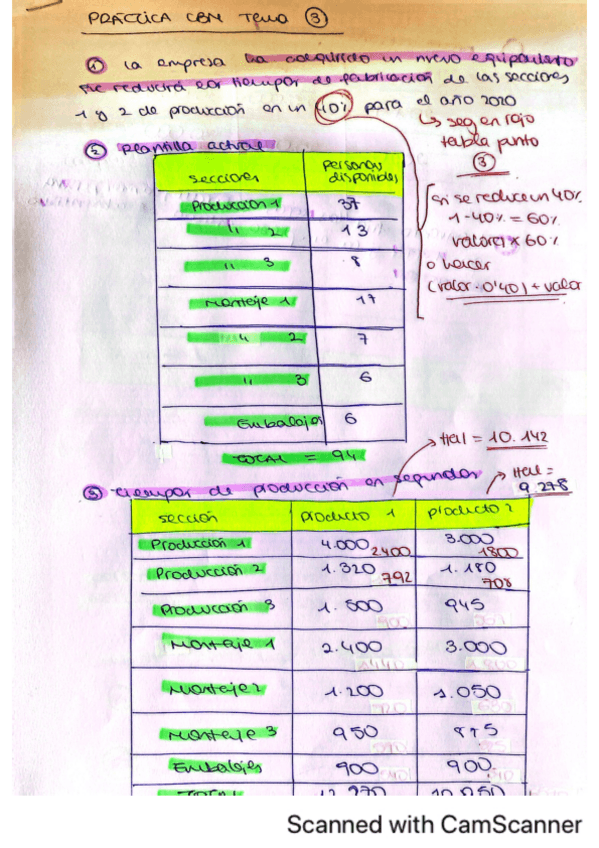 PRÁCTICA CBM Tema ③
① La empresa ha adquirido un nuevo equipamiento
que reducirá los tiempos de fabricación de las secciones
1 y 2 de producción en un 40% para el año 2020
↳ seg en rojo
tabla punto
③
② Plantilla actual
secciones
personas disponibles
Producción 1 37
" 2 13
" 3 8
Montaje 1 17
" 2 7
" 3 6
Embalajes 6
TOTAL = 94
Si se reduce un 40%
1 - 40% = 60%
valor(1) x 60%
o hacer
(valor · 0'40) + valor
Hcl = 10.142
Hcl =
9.278
③ Tiempos de producción en segundos
sección producto 1 producto 2
Producción 1 4.000 2400 3.000 1800
Producción 2 1.320 792 1.180 708
Producción 3 1.500 945
Montaje 1 2.400 3.000
Montaje 2 1.200 1.050
Montaje 3 950 875
Embalajes 900 900
TOTAL 12.270 10.950
Scanned with CamScanner